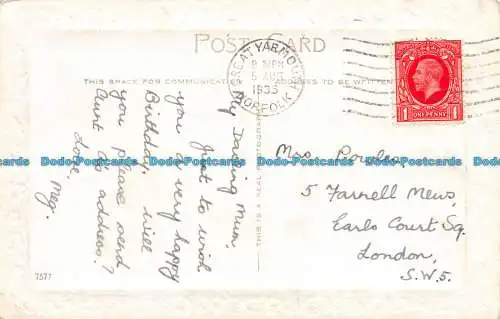 POST CARD
THIS SPACE FOR COMMUNICATION ADDRESS TO BE WRITTEN
GREAT YARMOUTH
NORFOLK
5 AUG
1935
ONE PENNY
1 1
My Darling Mum,
Just to wish
you a very happy
Birthday, will
you please send
Aunt address?
Love, Meg.
THIS IS A REAL PHOTOGRAPH
Mrs
5 Farnell Mews,
Earls Court Sq.
London,
S.W.5.
7577
Dado-Postcards Dado-Postcards Dado-Postcards Dado-Postcards